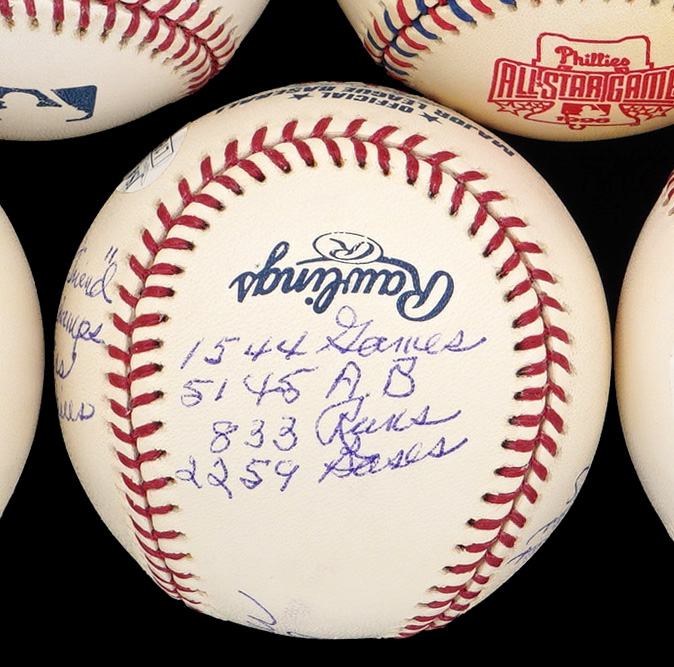 Phillies
ALL-STAR GAME
1996
OFFICIAL
MAJOR LEAGUE BASEBALL
Rawlings
R
1544 Games
5145 A.B
833 Runs
2259 Bases